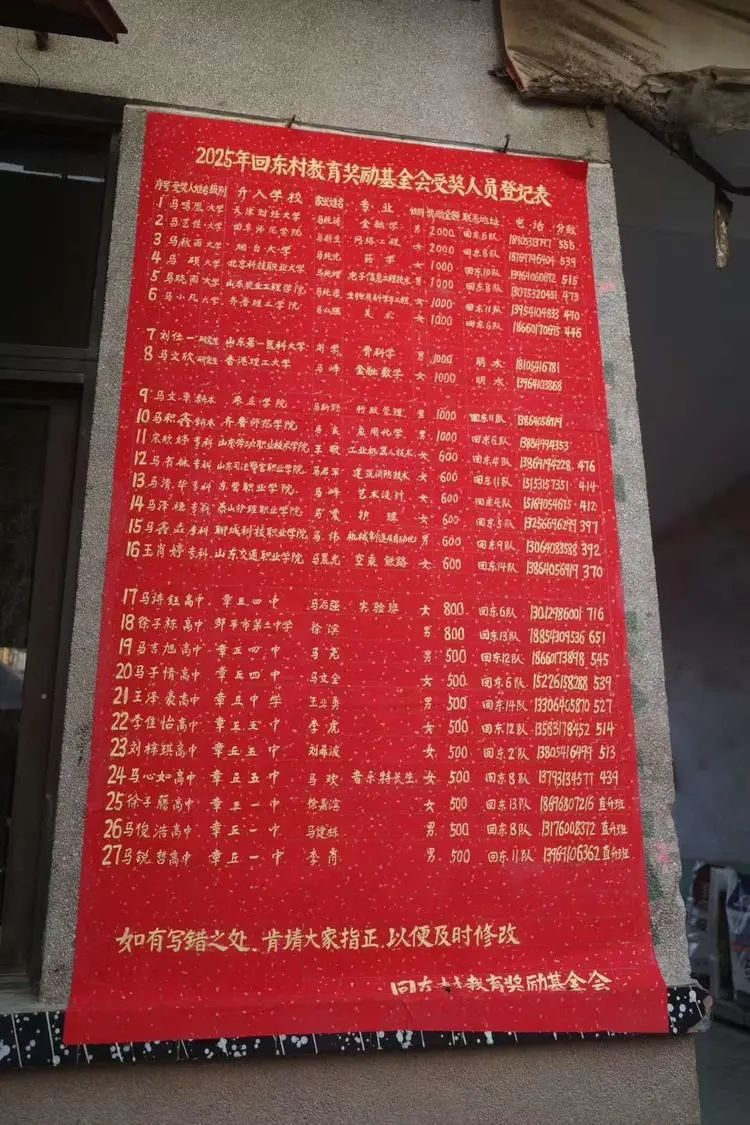 2025年回东村教育奖励基金会受奖人员登记表
序号 受奖人姓名 级别 升入学校 家长姓名 专业 性别 奖励金额 联系地址 电话 分数
1 马鸣 大学 天津财经大学 马纯涛 金融学 男 2000 回东6队 555
2 马艺佳 大学 曲阜师范学院 网络工程 女 2000 回东8队 18769746404 539
3 马秋雨 大学 烟台大学 药学 女 1000 回东10队 13964060692 515
4 马硕 大学 北京科技职业大学 电子信息工程技术 男 1000 回东8队 13075320451 473
5 马晓雨 大学 山东农业工程学院 女 1000 回东11队 13954104833 470
6 马小凡 大学 齐鲁理工学院 马仁强 美术 女 1000 回东6队 18660170695 446
7 刘任一 研究生 山东第一医科大学 刘学 骨科学 男 1000 明水 18105416781
8 马文欣 研究生 香港理工大学 马峰 金融数学 女 1000 明水 13964103868
9 马文苹 专本 枣庄学院 行政管理 男 1000 回东11队
10 马积鑫 专本 齐鲁师范学院 马良 应用化学 男 1000 回东6队 13864994353
11 宋欣婷 专科 山东劳动职业技术学院 王敬 工业机器人技术 女 600 回东4队 13869194228 476
12 马书林 专科 山东司法警官职业学院 马君军 建筑消防技术 女 600 回东11队 15153157351 414
13 马清华 专科 东营职业学院 马峰 艺术设计 女 600 回东4队 15169054675 412
14 马泽穗 专科 泰山护理职业学院 马震 护理 女 600 回东5队 13256696249 397
15 马鑫垚 专科 聊城科技职业学院 马伟 机械制造及自动化 男 600 回东9队 13064083588 392
16 王肖婷 专科 山东交通职业学院 马晨光 空乘 铁路 女 600 回东14队 13864056919 370
17 马诗钰 高中 章丘四中 马石强 实验班 女 800 回东6队 13012986001 716
18 徐子栋 高中 邹平市第二中学 徐滨 男 800 回东13队 18854309536 651
19 马吉旭 高中 章丘四中 马尧 男 500 回东12队 18660173898 545
20 马于情 高中 章丘四中 马文全 女 500 回东6队 15226158288 539
21 王泽豪 高中 章丘中学 王业勇 男 500 回东14队 13306405870 527
22 李佳怡 高中 章丘五中 李虎 女 500 回东12队 13583178452 514
23 刘梓琪 高中 章丘五中 刘希波 女 500 回东2队 13805416499 513
24 马心如 高中 章丘五中 马欢 音乐特长生 女 500 回东8队 13793134577 439
25 徐子藤 高中 章丘一中 徐嘉滨 女 500 回东13队 18696807216 直升班
26 马俊浩 高中 章丘一中 马建栋 男 500 回东8队 13176008372 直升班
27 马锐哲 高中 章丘一中 李肖 男 500 回东11队 13969106362 直升班
如有写错之处、肯请大家指正、以便及时修改
回东村教育奖励基金会